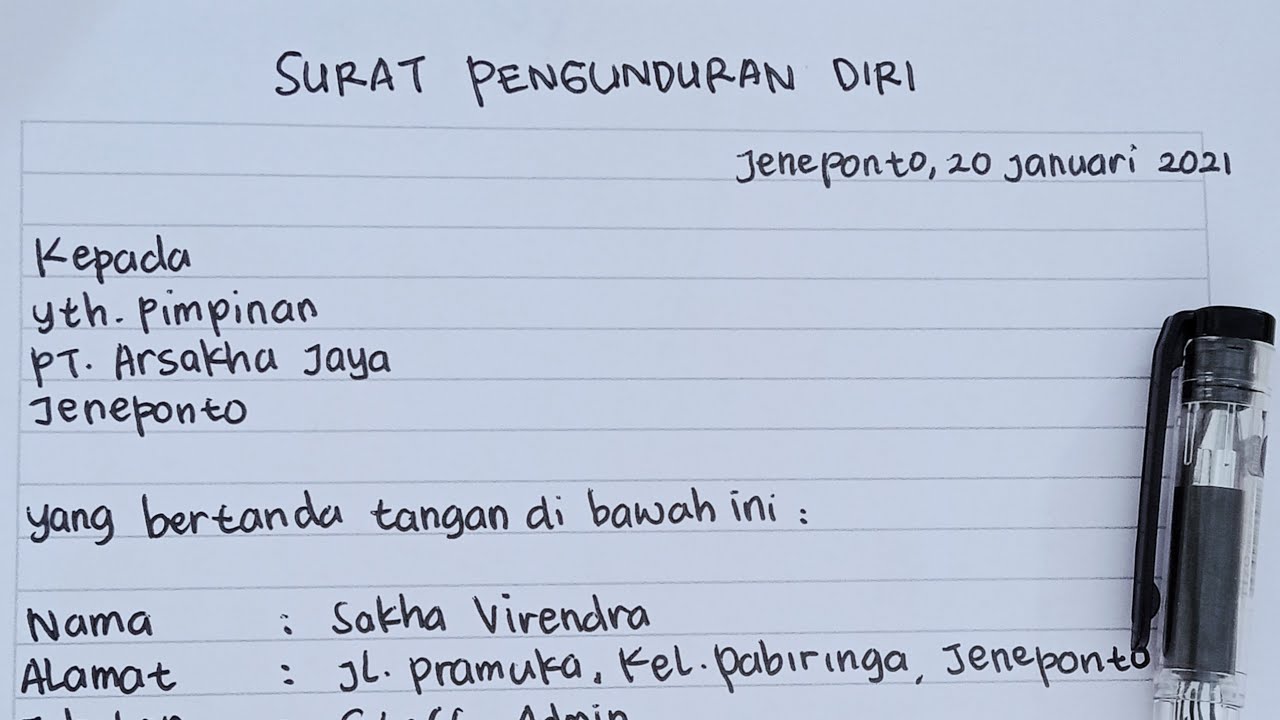 SURAT PENGUNDURAN DIRI
Jeneponto, 20 Januari 2021
Kepada
yth. Pimpinan
PT. Arsakha Jaya
Jeneponto
yang bertanda tangan di bawah ini :
Nama : Sakha Virendra
Alamat : Jl. Pramuka, Kel. Pabiringa, Jeneponto
Jabatan : Staff Admin